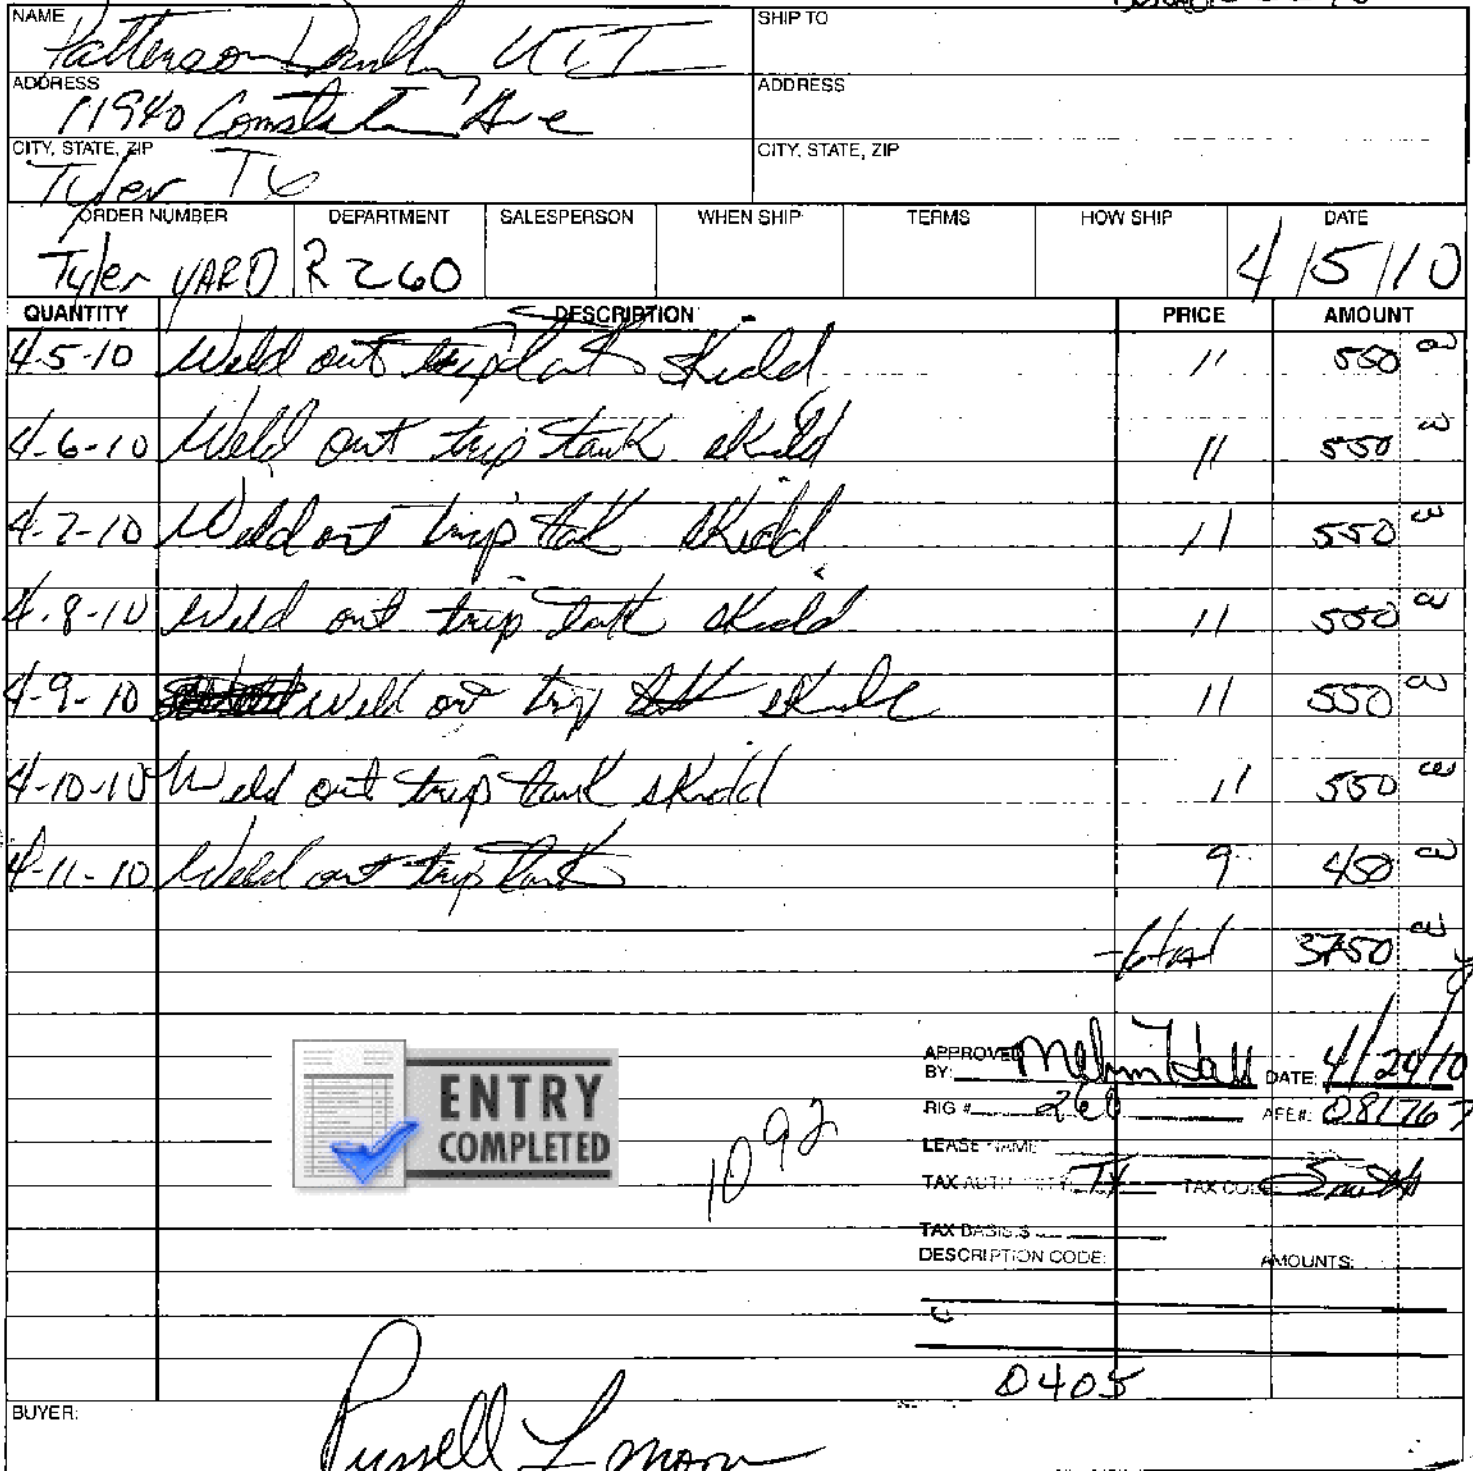 NAME SHIP TO
Patterson UTI
ADDRESS ADDRESS
11940 Ave
CITY, STATE, ZIP CITY, STATE, ZIP
Tyler TX
ORDER NUMBER DEPARTMENT SALESPERSON WHEN SHIP TERMS HOW SHIP DATE
Tyler YARD R260 4/5/10
QUANTITY DESCRIPTION PRICE AMOUNT
4-5-10 Weld out skidd 11 550 00
4-6-10 Weld out trip tank skidd 11 550 00
4-7-10 Weld out trip tank skidd 11 550 00
4-8-10 Weld out trip tank skidd 11 550 00
4-9-10 weld out trip skidd 11 550 00
4-10-10 Weld out trip tank skidd 11 550 00
4-11-10 Weld out trip tank 9 450 00
total 3750 00
APPROVED BY: Melvin Hall DATE: 4/20/10
ENTRY COMPLETED
RIG # 260 AFE#: 081767
1092
LEASE NAME
TAX AUTHORITY TX TAX CODE Smith
TAX BASIS $
DESCRIPTION CODE: AMOUNTS:
0405
BUYER:
Russell